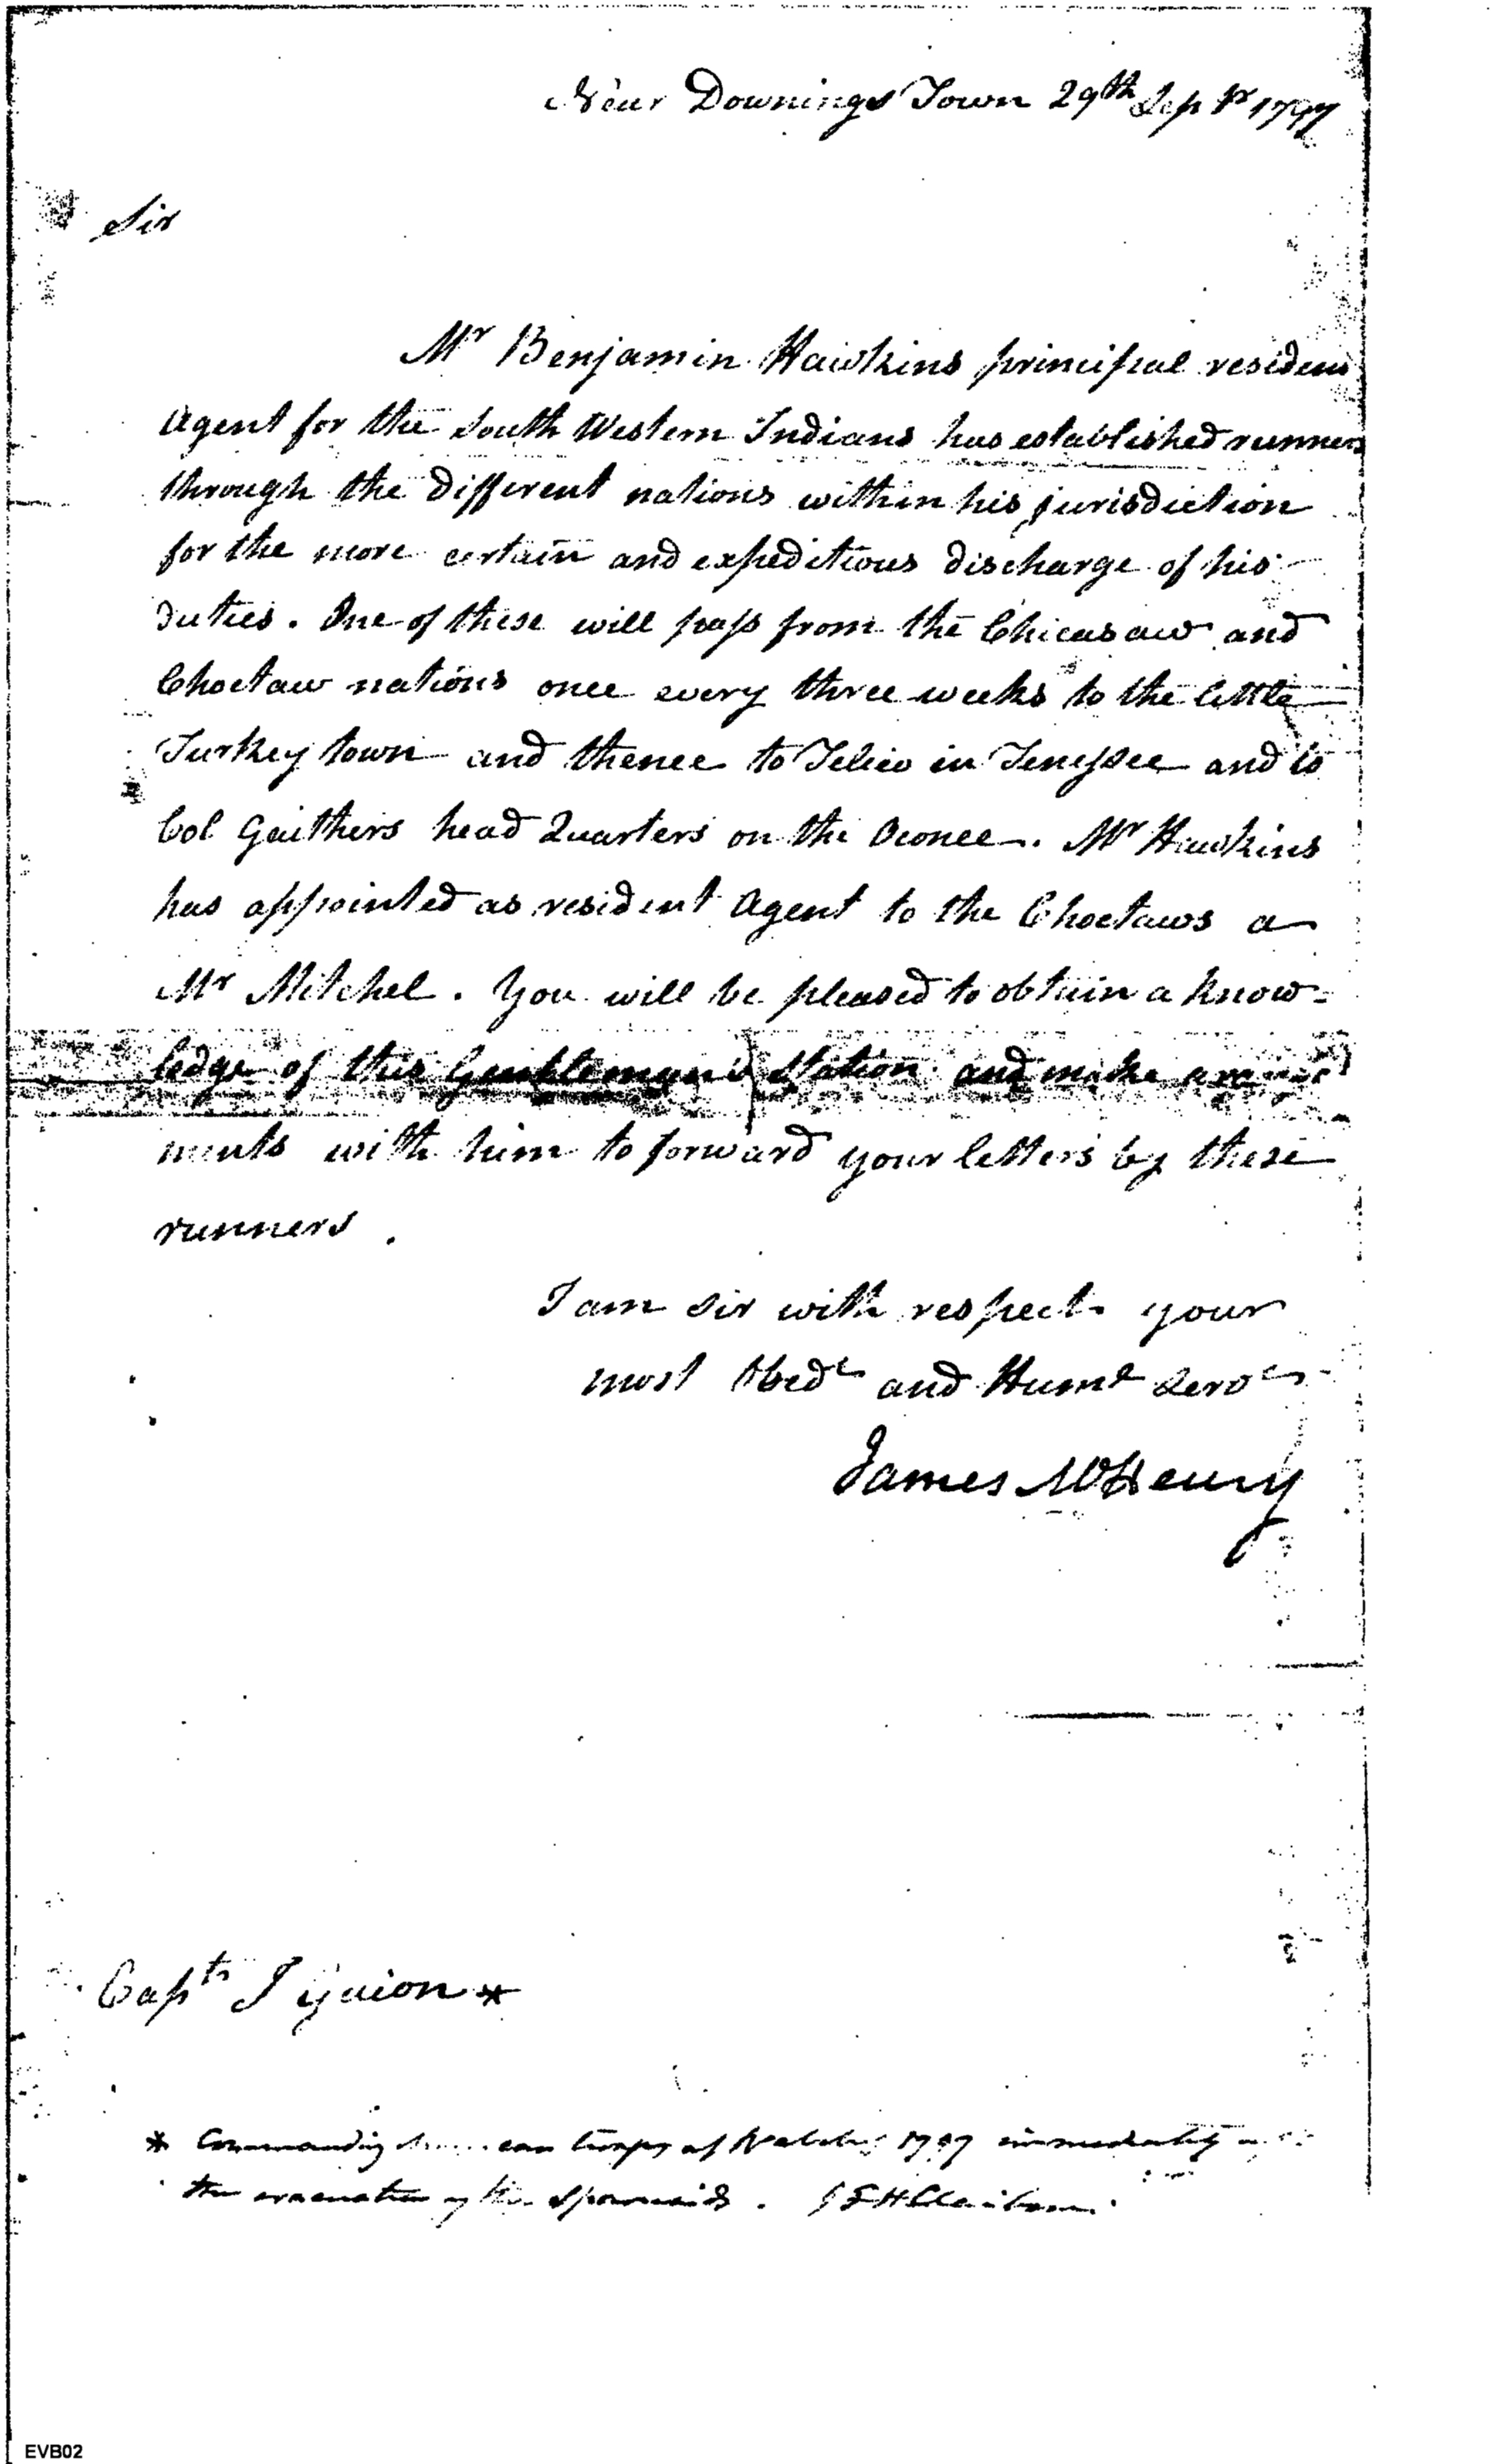 Near Downings Town 29th Septr 1797
Sir
Mr Benjamin Hawkins principal residen
Agent for the South Western Indians has established runners
through the different nations within his jurisdiction
for the more certain and expeditious discharge of his
duties. One of these will pass from the Chicasaw and
Choctaw nations once every three weeks to the little
Turkey town and thence to Telico in Tenessee and to
Col Gaithers head Quarters on the Oconee. Mr Hawkins
has appointed as resident Agent to the Choctaws a
Mr Mitchel. You will be pleased to obtain a know=
ledge of this Gentleman's Station and make
ments with him to forward your letters by these
runners.
I am sir with respect your
most Obedt and Hume Servt
James McHenry
Captn I Guion *
* Commanding troops at Natchez 1797 immediately
the evacuation of the Spaniards. J F H Claiborne.
EVB02